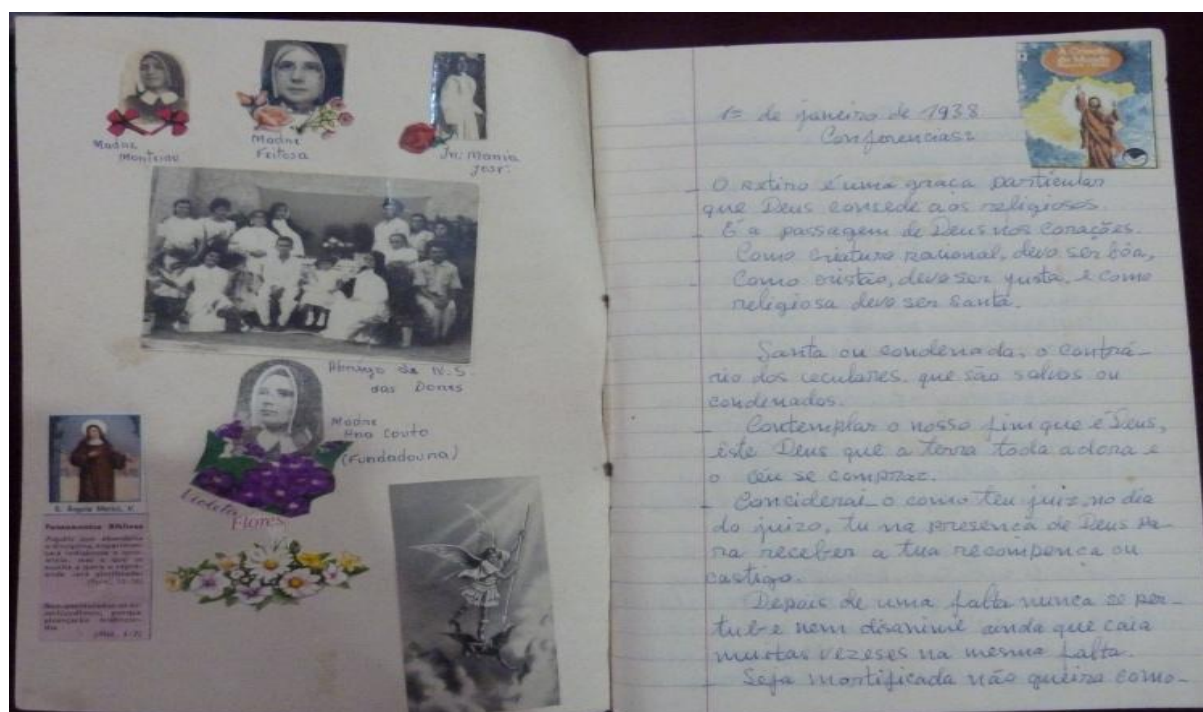 Madre
Monteiro
Madre
Feitosa
Ir. Maria
José.
Abrigo de N.S.
das Dores
Madre
Ana Couto
(Fundadoura)
S. Ângela Mérici, V.
Violeta
Flores
Pensamentos Bíblicos
1= de janeiro de 1938
Conferencias:
O retiro é uma graça particular
que Deus consede aos religiosos.
É a passagem de Deus nos corações.
Como criatura racional, devo ser bôa,
Como cristão, devo ser justa, e como
religiosa devo ser santa.
Santa ou condenada, o contrá-
rio dos ceculares, que são salvos ou
condenados.
Contemplar o nosso fim que é Deus,
êste Deus que a terra toda adora e
o céu se compraz.
Conciderai o como teu juiz, no dia
do juizo, tu na presença de Deus pa-
ra receber a tua recompença ou
castigo.
Depois de uma falta nunca se per-
tube nem disanime ainda que caia
muitas vezeses na mesma falta.
Seja mortificada não queira como-